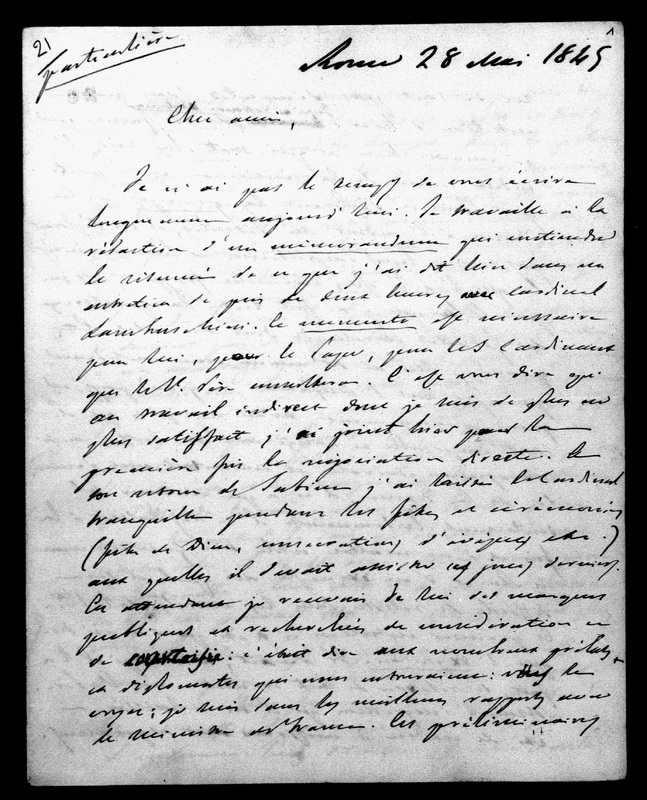 21
particulière
Rome 28 Mai 1845
Cher ami,
Je n'ai pas le temps de vous écrire
longuement aujourd'hui. Je travaille à la
rédaction d'un memorandum qui contiendra
le résumé de ce que j'ai dit hier dans un
entretien de près de deux heures au Cardinal
Lambruschini. Ce memento est nécessaire
pour lui, pour le Pape, pour les Cardinaux
que le St. Père consultera. C'est vous dire qu'
au travail indirect dont je suis de plus en
plus satisfait j'ai joint hier pour la
première fois la négociation directe. A
son retour de Sabine j'ai laissé le Cardinal
tranquille pendant les fêtes et cérémonies
(fête de Dieu, consécration d'évêques etc.)
aux quelles il devait assister ces jours derniers.
En attendant je recevais de lui des marques
publiques et recherchées de considération et
de : c'était dire aux nombreux prélats
et diplomates qui nous entouraient: vous le
voyez; je suis dans les meilleurs rapports avec
le ministre de France. Ces préliminaires